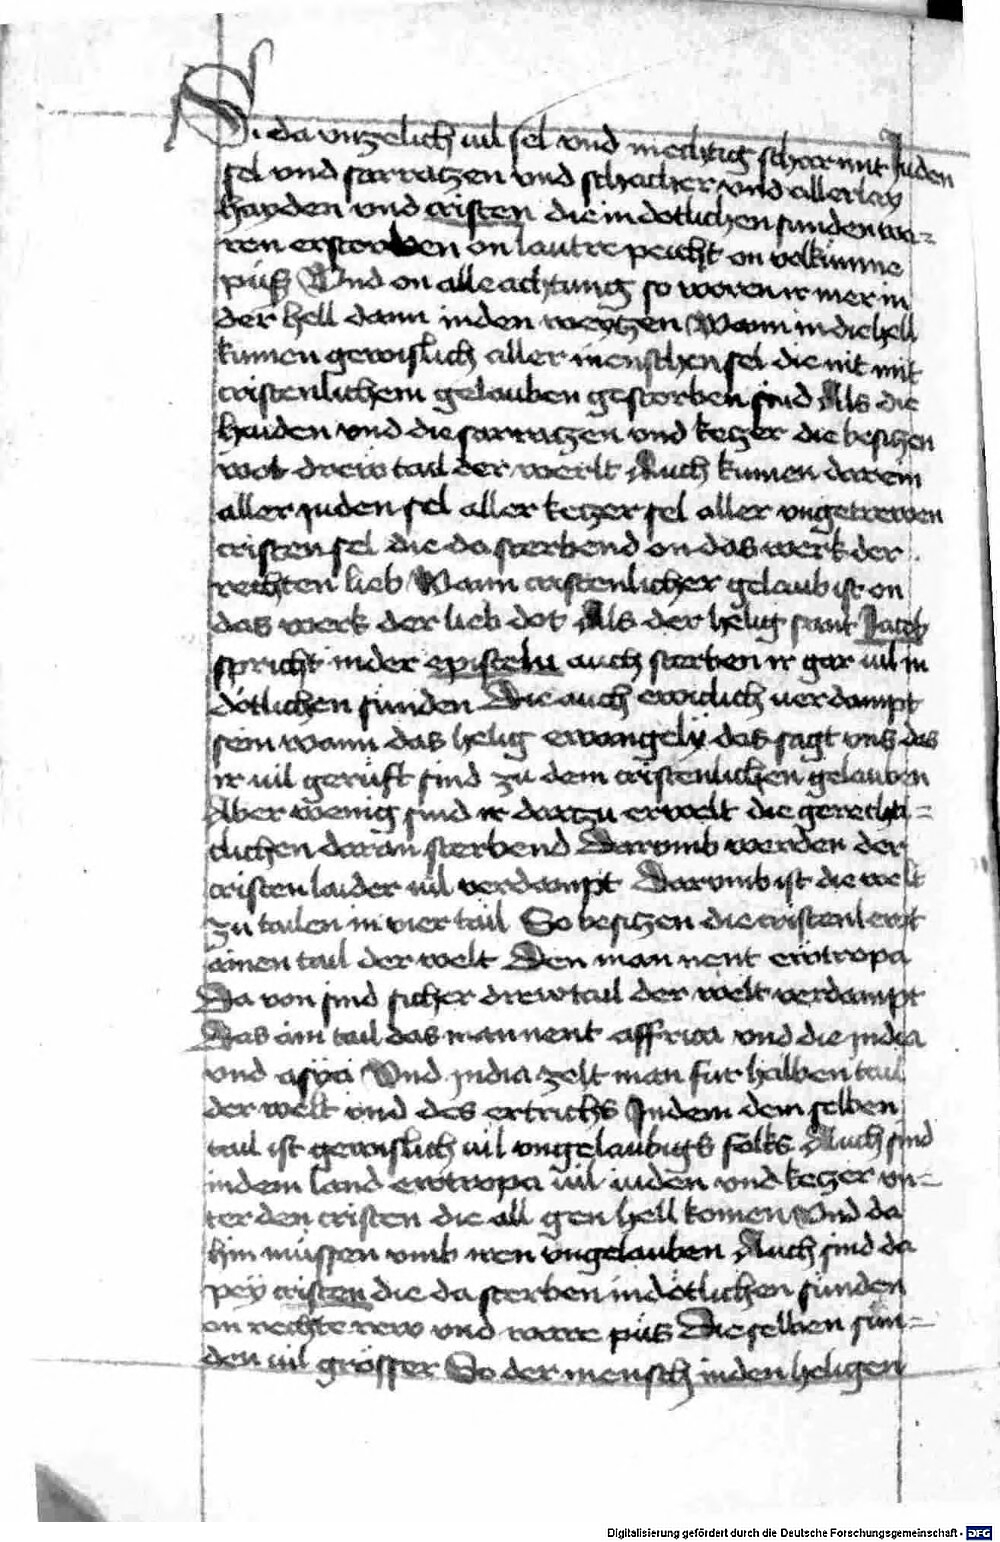 Si da vnzelich uil sel vnd mechtig schar mit Juden
sel vnd sarratzen vnd schacher vnd allerlay
hayden vnd cristen die in dotlichen sunden wa=
ren erstorben on lautre peicht on volkumme
puss Vnd on alle achtung so woren ir mer in
der hell dann in den weytzen Wann in die hell
kumen gewislich aller menschen sel die nit mit
cristenlichem gelauben gestorben sind Als die
haiden vnd die sarratzen vnd ketzer die besitzen
wol drew tail der werlt Auch kumen darein
aller juden sel aller ketzer sel aller vngetrewen
cristen sel die da sterbend on das werk der
rechten lieb Wann cristenlicher gelaub ist on
das werk der lieb dot Als der helig sant Jacob
spricht in der episteln auch sterben ir gar uil in
dötlichen sunden Die auch ewiclich uerdampt
sein wann das helig ewangely das sagt vns das
ir uil gerüft sind zu dem cristenlichen gelauben
Aber wenig sind ir dartzu erwelt die gerechti=
clichen daran sterbend Darumb werden der
cristen laider uil verdampt Darumb ist die welt
zu tailen in vier tail So besitzen die cristenlewt
ainen tail der welt Den man nent ewropa
Da von sind sicher drew tail der welt verdampt
Das ain tail das man nent affrica vnd die jndia
vnd asya Vnd jndia zelt man fur halben tail
der welt vnd des ertrichs Jn dem dem selben
tail ist gewislich uil vngelaubigs folks Auch sind
in dem land ewropa uil iuden vnd ketzer vn=
ter den cristen die all gen hell komen Vnd da
hin müssen vmb iren vngelauben Auch sind da
pey cristen die da sterben in dötlichen sünden
on rechte rew vnd ware püs Die selben sün=
den uil grösser So der mensch in den heligen
Digitalisierung gefördert durch die Deutsche Forschungsgemeinschaft - DFG